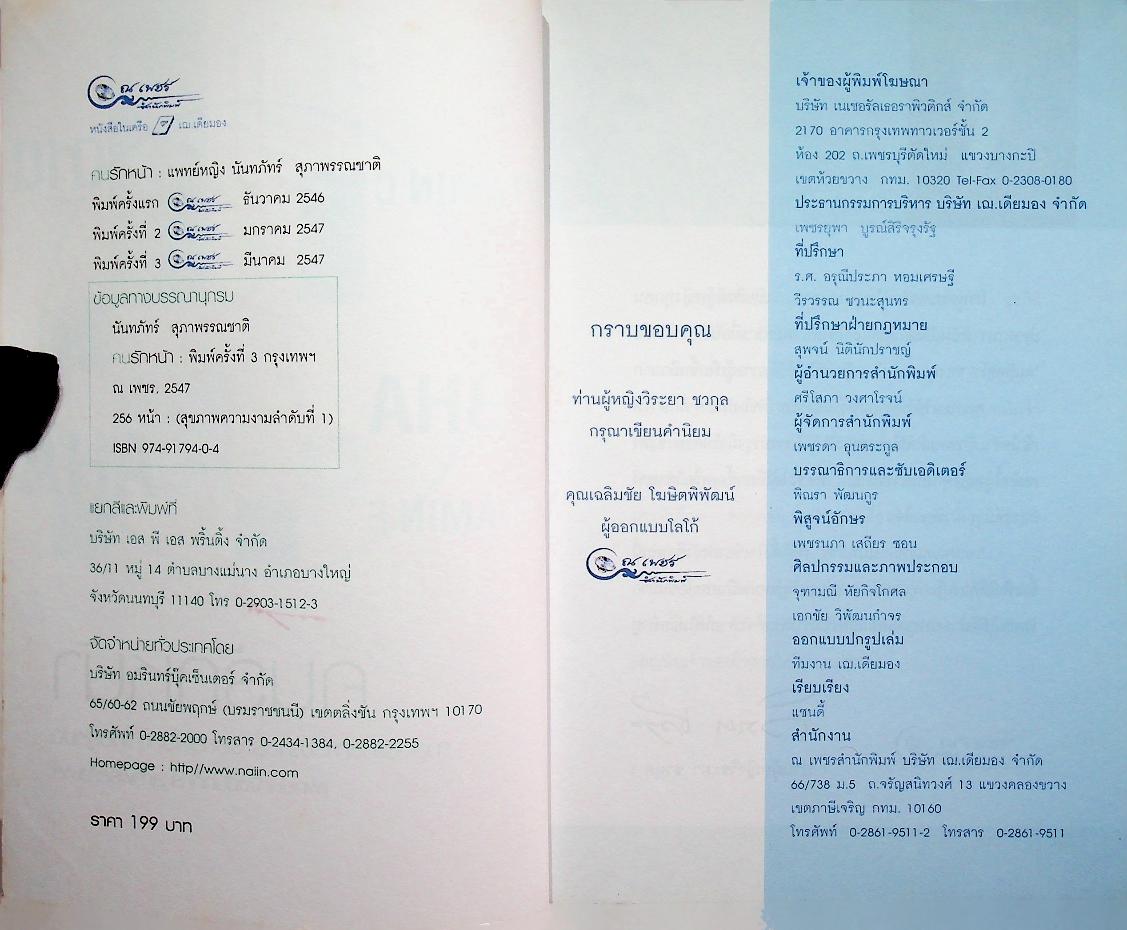 ณ เพชร
สำนักพิมพ์
หนังสือในเครือ เฌ.เดียมอง
คนรักหน้า : แพทย์หญิง นันทภัทร์ สุภาพรรณชาติ
พิมพ์ครั้งแรก ณ เพชร สำนักพิมพ์ ธันวาคม 2546
พิมพ์ครั้งที่ 2 ณ เพชร สำนักพิมพ์ มกราคม 2547
พิมพ์ครั้งที่ 3 ณ เพชร สำนักพิมพ์ มีนาคม 2547
ข้อมูลทางบรรณานุกรม
นันทภัทร์ สุภาพรรณชาติ
คนรักหน้า : พิมพ์ครั้งที่ 3 กรุงเทพฯ
ณ เพชร, 2547
256 หน้า : (สุขภาพความงามลำดับที่ 1)
ISBN 974-91794-0-4
แยกสีและพิมพ์ที่
บริษัท เอส พี เอส พริ้นติ้ง จำกัด
36/11 หมู่ 14 ตำบลบางแม่นาง อำเภอบางใหญ่
จังหวัดนนทบุรี 11140 โทร 0-2903-1512-3
จัดจำหน่ายทั่วประเทศโดย
บริษัท อมรินทร์บุ๊คเซ็นเตอร์ จำกัด
65/60-62 ถนนชัยพฤกษ์ (บรมราชชนนี) เขตตลิ่งชัน กรุงเทพฯ 10170
โทรศัพท์ 0-2882-2000 โทรสาร 0-2434-1384, 0-2882-2255
Homepage : http//www.naiin.com
ราคา 199 บาท
กราบขอบคุณ
ท่านผู้หญิงวิระยา ชวกุล
กรุณาเขียนคำนิยม
คุณเฉลิมชัย โฆษิตพิพัฒน์
ผู้ออกแบบโลโก้
ณ เพชร
สำนักพิมพ์
เจ้าของผู้พิมพ์โฆษณา
บริษัท เนเชอรัลเธอราพิวติกส์ จำกัด
2170 อาคารกรุงเทพทาวเวอร์ชั้น 2
ห้อง 202 ถ.เพชรบุรีตัดใหม่ แขวงบางกะปิ
เขตห้วยขวาง กทม. 10320 Tel-Fax 0-2308-0180
ประธานกรรมการบริหาร บริษัท เฌ.เดียมอง จำกัด
เพชรยุพา บูรณ์สิริจรุงรัฐ
ที่ปรึกษา
ร.ศ. อรุณีประภา หอมเศรษฐี
วีรวรรณ ชวนะสุนทร
ที่ปรึกษาฝ่ายกฎหมาย
สุพจน์ นิตินักปราชญ์
ผู้อำนวยการสำนักพิมพ์
ศรีโสภา วงศาโรจน์
ผู้จัดการสำนักพิมพ์
เพชรดา อุนตระกูล
บรรณาธิการและซับเอดิเตอร์
พิณรา พัฒนกูร
พิสูจน์อักษร
เพชรนภา เสถียร ซอน
ศิลปกรรมและภาพประกอบ
จุฑามณี หัยกิจโกศล
เอกชัย วิพัฒนกำจร
ออกแบบปกรูปเล่ม
ทีมงาน เฌ.เดียมอง
เรียบเรียง
แซนดี้
สำนักงาน
ณ เพชรสำนักพิมพ์ บริษัท เฌ.เดียมอง จำกัด
66/738 ม.5 ถ.จรัญสนิทวงศ์ 13 แขวงคลองขวาง
เขตภาษีเจริญ กทม. 10160
โทรศัพท์ 0-2861-9511-2 โทรสาร 0-2861-9511